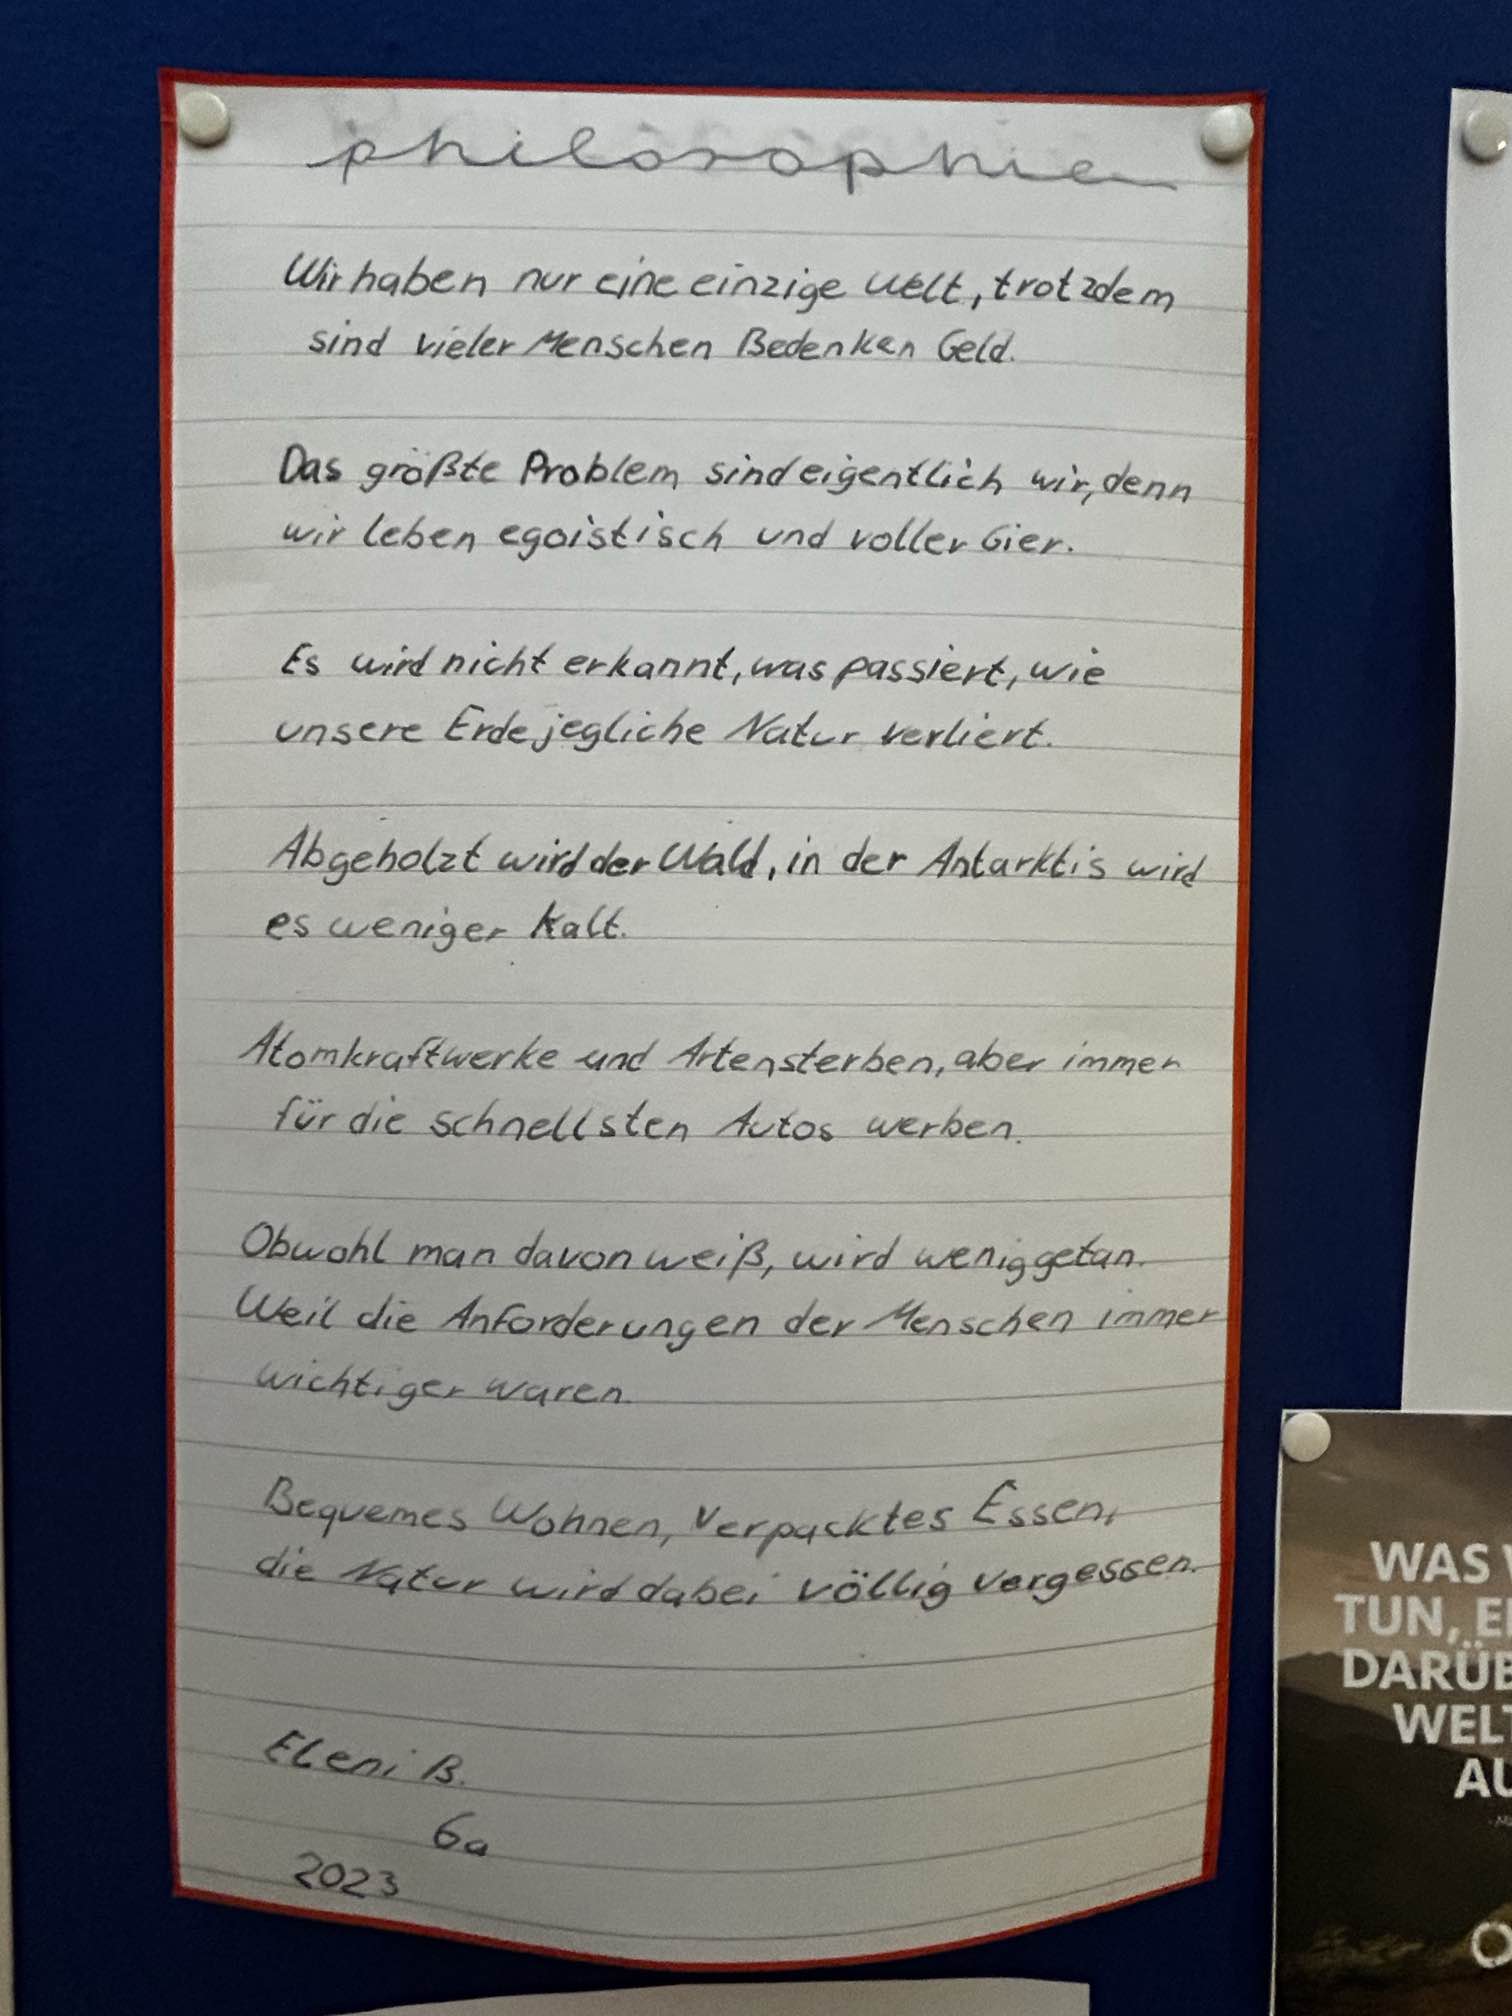 philosophie
Wir haben nur eine einzige Welt, trotzdem
sind vieler Menschen Bedenken Geld.
Das größte Problem sind eigentlich wir, denn
wir leben egoistisch und voller Gier.
Es wird nicht erkannt, was passiert, wie
unsere Erde jegliche Natur verliert.
Abgeholzt wird der Wald, in der Antarktis wird
es weniger Kalt.
Atomkraftwerke und Artensterben, aber immer
für die schnellsten Autos werben.
Obwohl man davon weiß, wird wenig getan.
Weil die Anforderungen der Menschen immer
wichtiger waren.
Bequemes Wohnen, verpacktes Essen,
die Natur wird dabei völlig vergessen.
Eleni B.
6a
2023
WAS
TUN,
DARÜB
WELT
AU